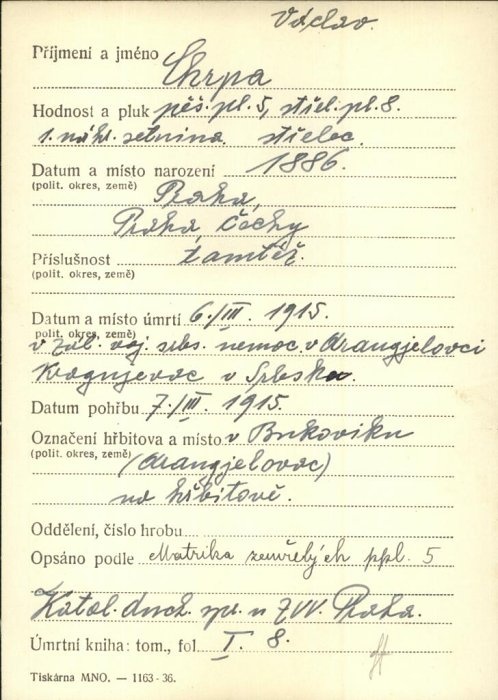 Václav.
Příjmení a jméno Chrpa
Hodnost a pluk pěš. pl. 5, střel. pl. 8.
1. náhr. setnina. střelec.
Datum a místo narození 1886.
(polit. okres, země) Praha,
Praha, Čechy
Příslušnost tamtéž.
(polit. okres, země)
Datum a místo úmrtí 6./III. 1915.
polit. okres, země)
v zál. voj. srbs. nemoc. v Arangjelovci
Kragujevac v Srbsku.
Datum pohřbu 7./III. 1915.
Označení hřbitova a místo v Bukoviku
(polit. okres, země) (Arangjelovac)
na hřbitově.
Oddělení, číslo hrobu
Opsáno podle Matrika zemřelých ppl. 5
Katol. duch. spr. u ZVV. Praha.
Úmrtní kniha: tom., fol. I. 8.
Tiskárna MNO. — 1163-36.